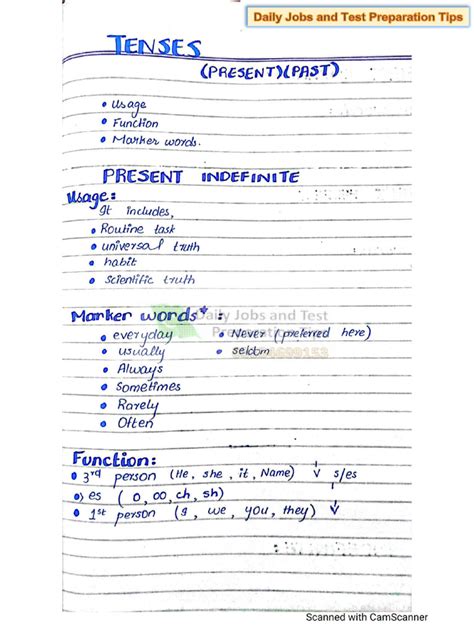 Daily Jobs and Test Preparation Tips
TENSES
(PRESENT)(PAST)
• Usage
• Function
• Marker words.
PRESENT INDEFINITE
Usage:
It includes,
• Routine task
• universal truth
• habit
• scientific truth
Marker words* :
Daily Jobs and Test
• everyday • Never (preferred here)
• usually • seldom
• Always
• Sometimes
• Rarely
• Often
Function:
• 3rd person (He, she, it, Name) V s/es
•) es (o, oo, ch, sh)
• 1st person (I, we, you, they) V
Scanned with CamScanner